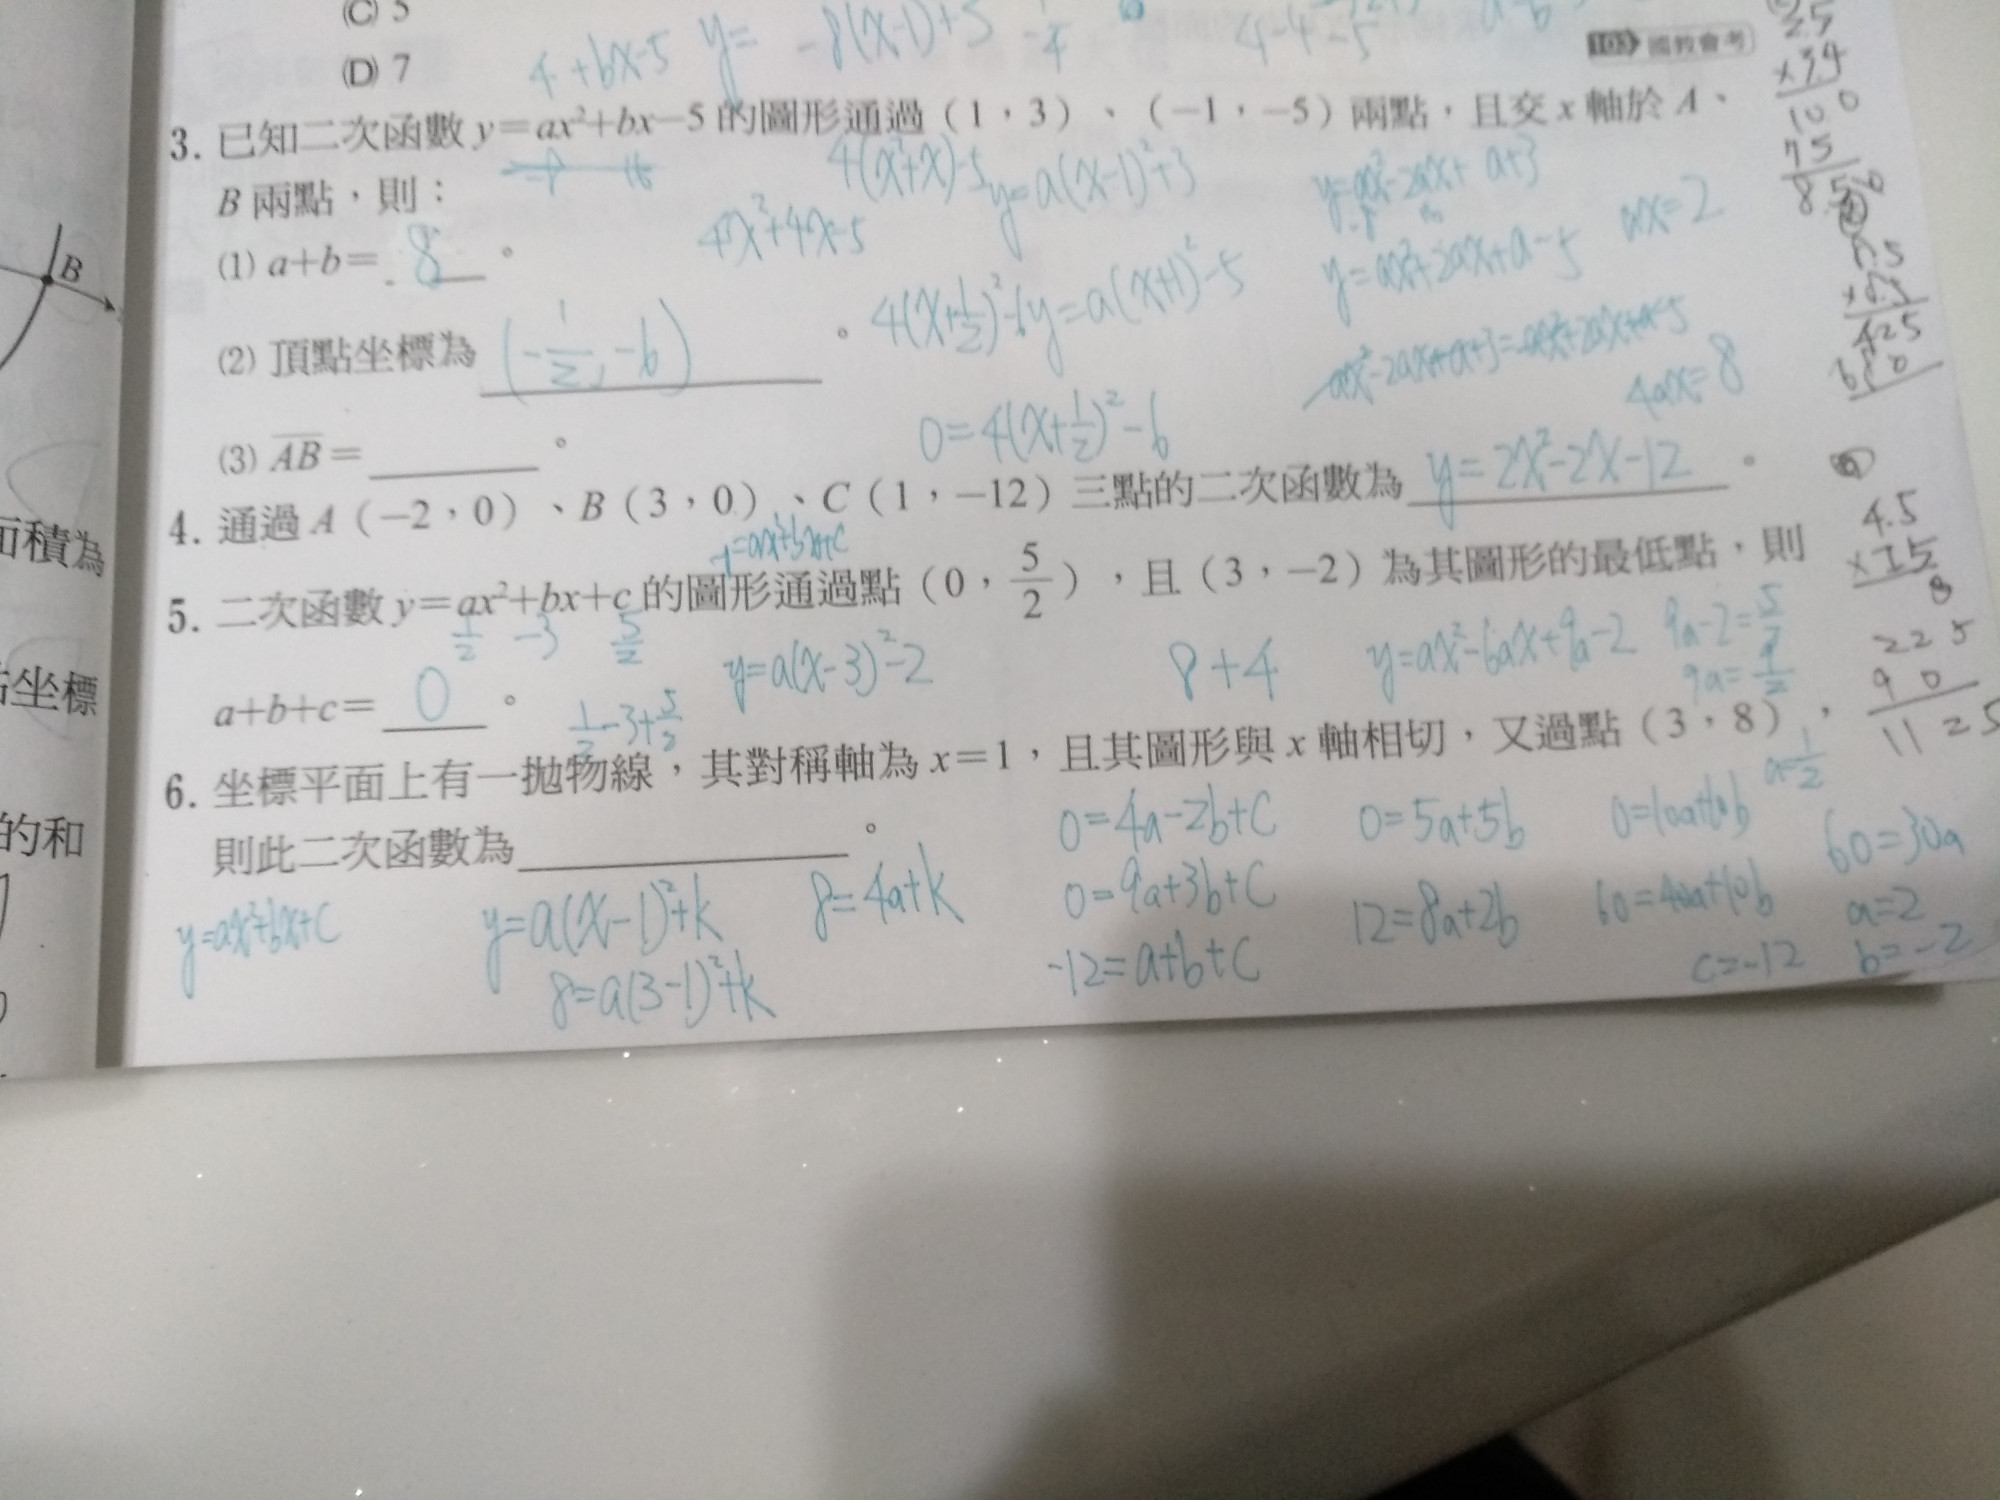 (C) 5
(D) 7
4 +bx-5 y= -8(x-1)+3
103 國教會考
3. 已知二次函數 y=ax²+bx-5 的圖形通過（1，3）、（-1，-5）兩點，且交 x 軸於 A、
B 兩點，則：
4(x²+x)-5
y=a(x-1)²+3
y=ax²-2ax+a+3
4x²+4x-5
ax=2
(1) a+b= 8 。
y=ax²+2ax+a-5
4(x+1/2)²-6
y=a(x+1)²-5
(2) 頂點坐標為 (-1/2, -6) 。
4ax=8
0=4(x+1/2)²-6
(3) AB= 。
4. 通過 A（-2，0）、B（3，0）、C（1，-12）三點的二次函數為 y=2x²-2x-12 。
5. 二次函數 y=ax²+bx+c 的圖形通過點（0，5/2），且（3，-2）為其圖形的最低點，則
1/2 -3 5/2
y=a(x-3)²-2
8+4
y=ax²-6ax+9a-2
9a-2=5/2
9a=9/2
a=1/2
a+b+c= 0 。
1/2-3+5/2
6. 坐標平面上有一拋物線，其對稱軸為 x=1，且其圖形與 x 軸相切，又過點（3，8），
則此二次函數為 。
0=4a-2b+c
0=5a+5b
0=10a+10b
60=30a
y=ax²+bx+c
y=a(x-1)²+k
8=4a+k
0=9a+3b+c
12=8a+2b
60=40a+10b
a=2
8=a(3-1)²+k
-12=a+b+c
c=-12
b=-2
B
面積為
坐標
的和
2.5
×3.4
100
75
8.50
425
4.5
225
90
1125